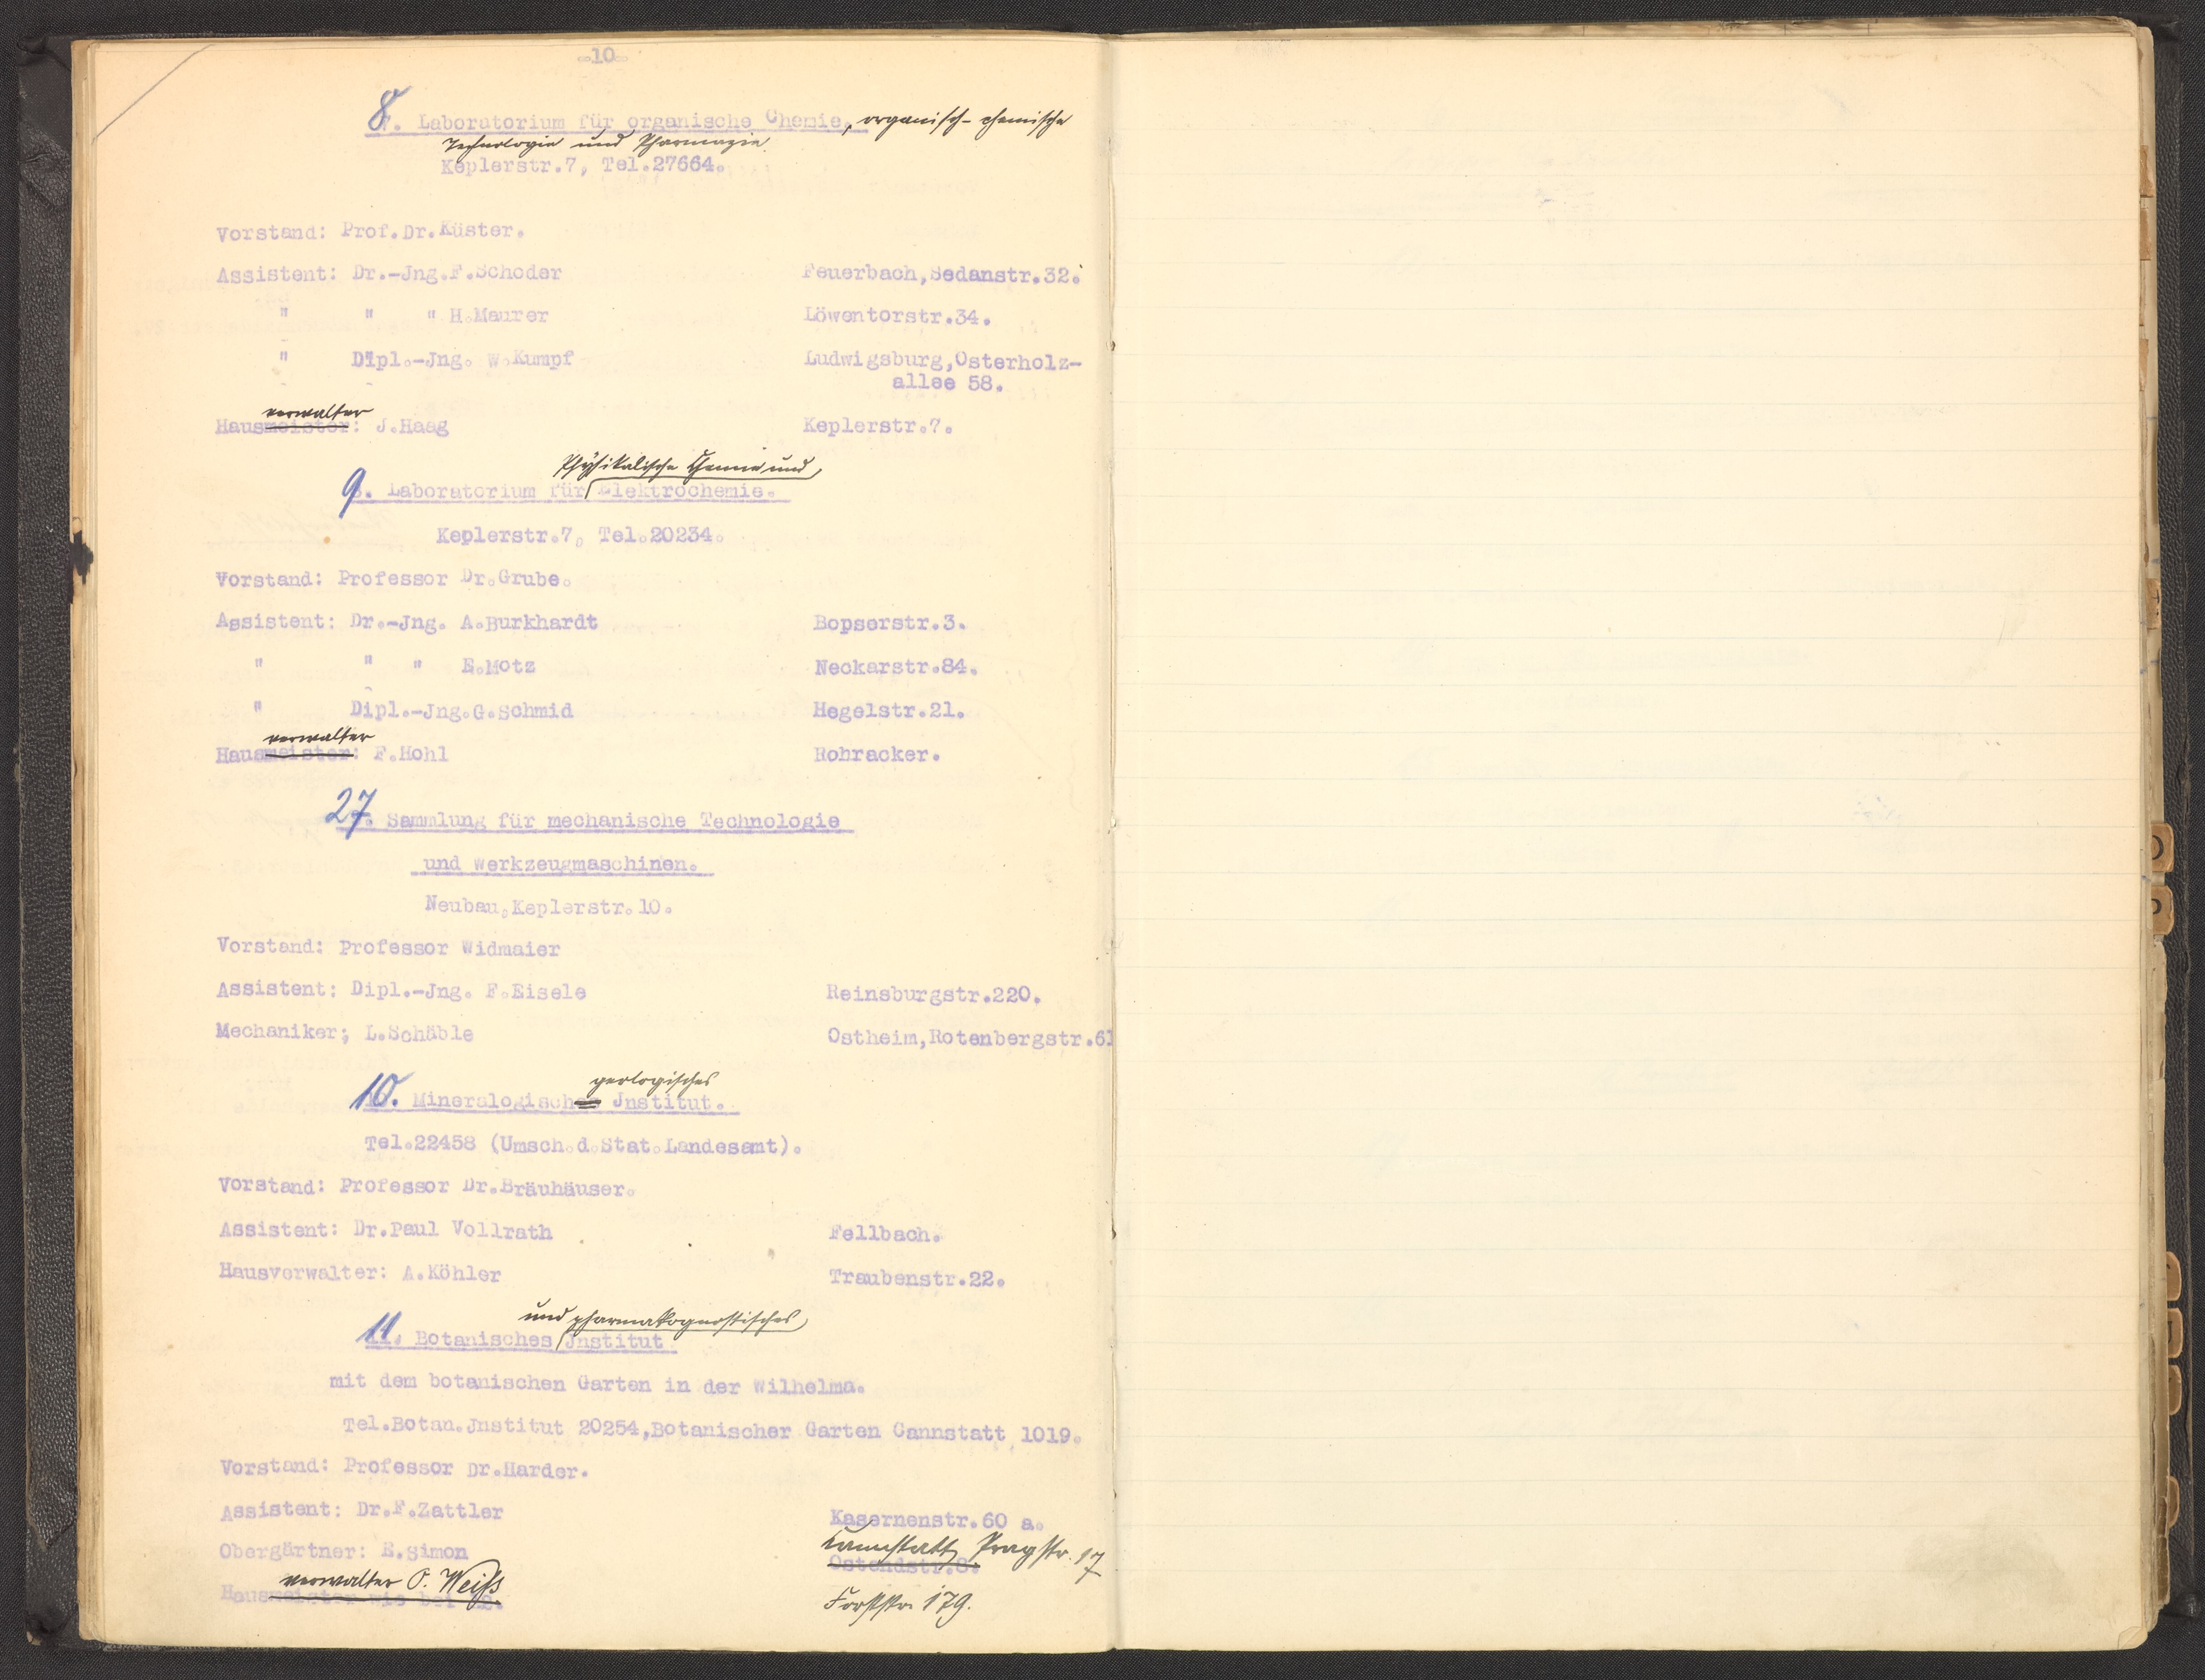 -10-
8. Laboratorium für organische Chemie, organisch-chemische
Technologie und Pharmazie
Keplerstr.7, Tel.27664.
Vorstand: Prof.Dr.Küster.
Assistent: Dr.-Jng.F.Schoder Feuerbach,Sedanstr.32.
" " " H.Maurer Löwentorstr.34.
" Dipl.-Jng. W.Kumpf Ludwigsburg,Osterholz-
allee 58.
verwalter
Hausmeister: J.Haag Keplerstr.7.
Physikalische Chemie und
9. Laboratorium für Elektrochemie.
Keplerstr.7, Tel.20234.
Vorstand: Professor Dr.Grube.
Assistent: Dr.-Jng. A.Burkhardt Bopserstr.3.
" " " E.Motz Neckarstr.84.
" Dipl.-Jng.G.Schmid Hegelstr.21.
verwalter
Hausmeister: F.Hohl Rohracker.
27. Sammlung für mechanische Technologie
und Werkzeugmaschinen.
Neubau,Keplerstr.10.
Vorstand: Professor Widmaier
Assistent: Dipl.-Jng. F.Eisele Reinsburgstr.220.
Mechaniker; L.Schäble Ostheim,Rotenbergstr.61
geologisches
10. Mineralogisches Jnstitut.
Tel.22458 (Umsch.d.Stat.Landesamt).
Vorstand: Professor Dr.Bräuhäuser.
Assistent: Dr.Paul Vollrath Fellbach.
Hausverwalter: A.Köhler Traubenstr.22.
und pharmakognostisches
11. Botanisches Jnstitut
mit dem botanischen Garten in der Wilhelma.
Tel.Botan.Jnstitut 20254,Botanischer Garten Cannstatt 1019.
Vorstand: Professor Dr.Harder.
Assistent: Dr.F.Zattler Kasernenstr.60 a.
Cannstatt, Pragstr. 17
Obergärtner: E.Simon Ostendstr.8.
verwalter O. Weiß
Hausmeister wie bei 12. Forststr. 179.